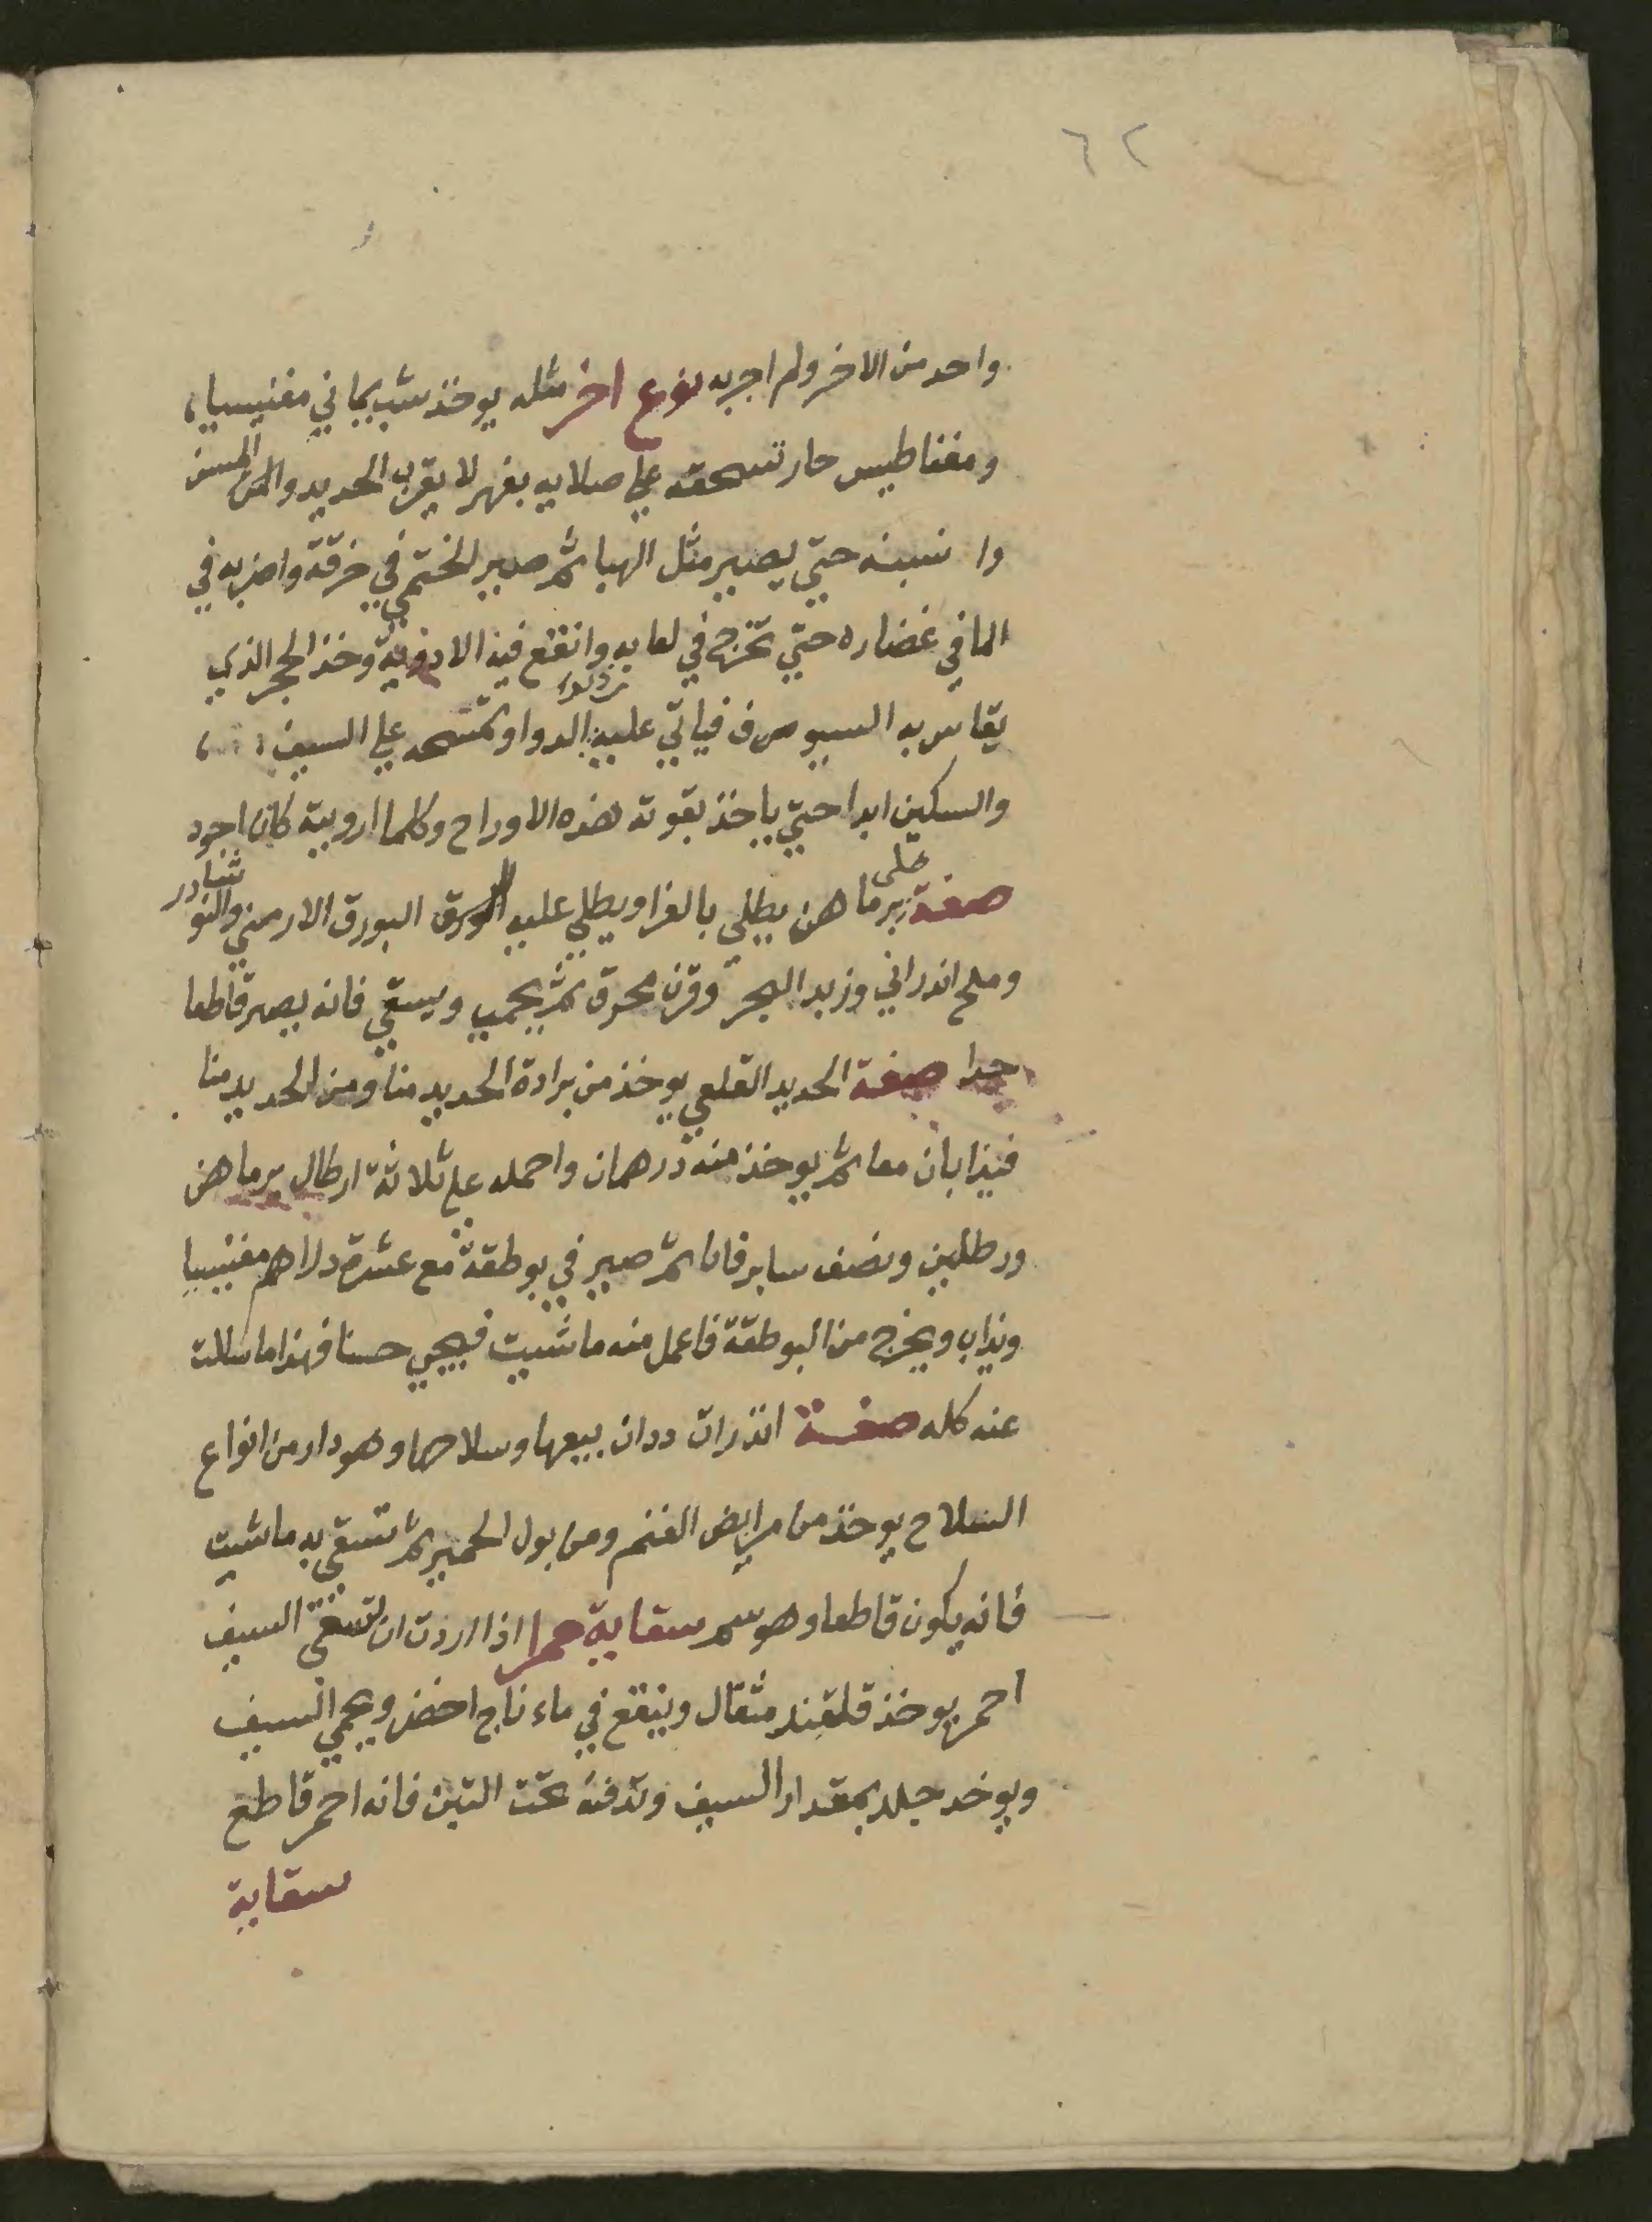 ٦٢
واحد من الاخر ولم اجربه نوع اخر مثله يوخذ شب يماني مغنيسيا
ومغناطيس حار تسحقه علي صلايه بفهر لا يقرب الحديد والمن المسن
وا نسبنه حتي يصير مثل الهبا ثم صير الختمي في خرقة واضربه في
الما في غضاره حتي تخرج في لعابه وانقع فيه الادوية وخذ الحجر الذي
يقاس به السيوف فياتي عليه الدوا وتمسحه علي السيف
والسكين ابدا حتي ياخذ بقوته هذه الاوراح وكلما ارويته كان اجود
صفة علي برماهن يطلي بالغرا ويطلي عليه البورق الارمني والنوشادر
وملح اندراني وزبد البحر وقرن محرق ثم يحمي ويسقي فانه يصير قاطعا
جدا صفة الحديد القلعي يوخذ من برادة الحديد منا ومن الحديد منا
فيذابان معا ثم يوخذ منه درهمان واحمله علي ثلاثة ارطال برماهن
ورطلين ونصف سابرقان ثم صير في بوطقة مع عشرة دراهم مغنيسيا
ويذاب ويخرج من البوطقة فاعمل منه ما شيت فيجي حسنا فهذا ما سالت
عنه كله صفة اندران ددان بيعها وسلاحها وهو دار من انواع
السلاح يوخذ من مرابض الغنم ومن بول الحمير ثم تسقي به ما شيت
فانه يكون قاطعا وهو سم سقاية حمرا اذا اردت ان تسقي السيف
احمر يوخذ قلقند مثقال وينقع في ماء ناج اخضر ويحمي السيف
ويوخد جلد بمقدار السيف وتدفنه تحت التبن فانه احمر قاطع
سقاية